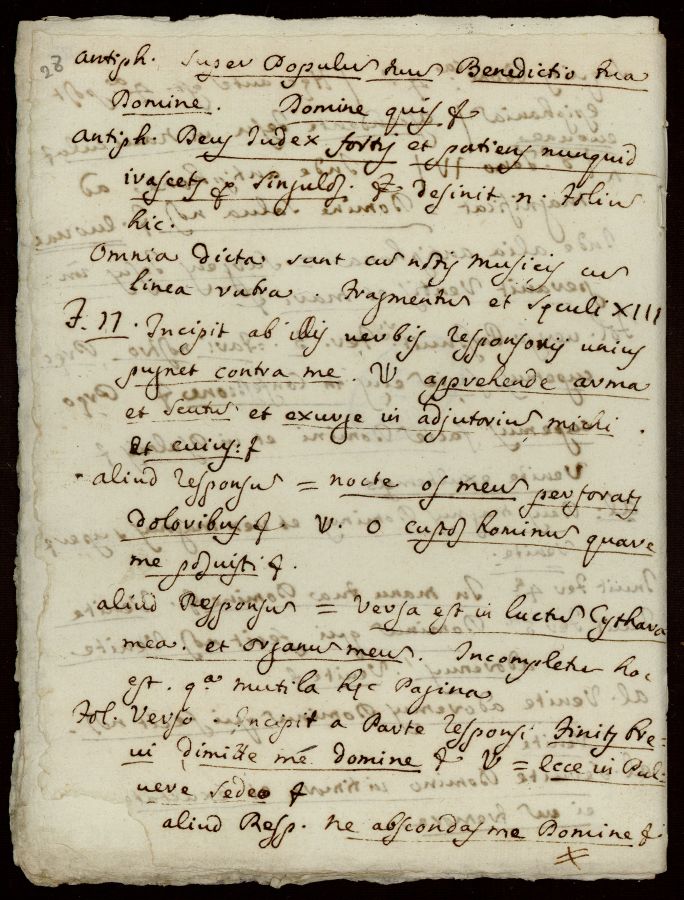 28
antiph. super Populū tuū Benedictio tua
Domine. Domine quis &
antiph. Deus Iudex fortis et patiens nunquid
irascetʳ p singulos. & desinit n. folium
hic.
Omnia dicta sunt cū notis musicis cū
linea rubra. Fragmentū et sęculi XIII
F. II. Incipit ab illis verbis responsorii unius
pugnet contra me. V apprehende arma
et scutū et exurge in adjutoriū michi.
Et cuius: &
aliud responsū = nocte os meū perforatʳ
doloribus &. V. O custos hominum quare
me posuisti &.
aliud Responsū = Versa est in luctū Cythara
mea. et organum meū. Incompletū hoc
est. qᵃ mutila hęc Pagina
Fol. Verso. Incipit a Parte responsi finitʳ bre-
vi dimitte me domine & V = Ecce in Pul-
vere sedeo &
aliud Resp. ne abscondas me Domine &